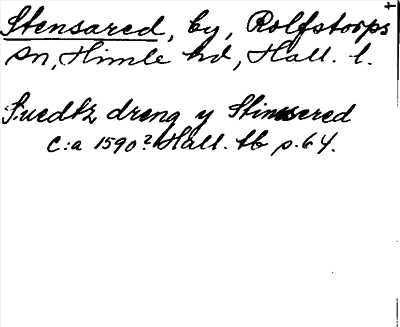 Stensared, by, Rolfstorps
sn, Himle hd, Hall. l.
Suedtz dreng y Stinssered
C:a 1590? Hall. tb p. 64.